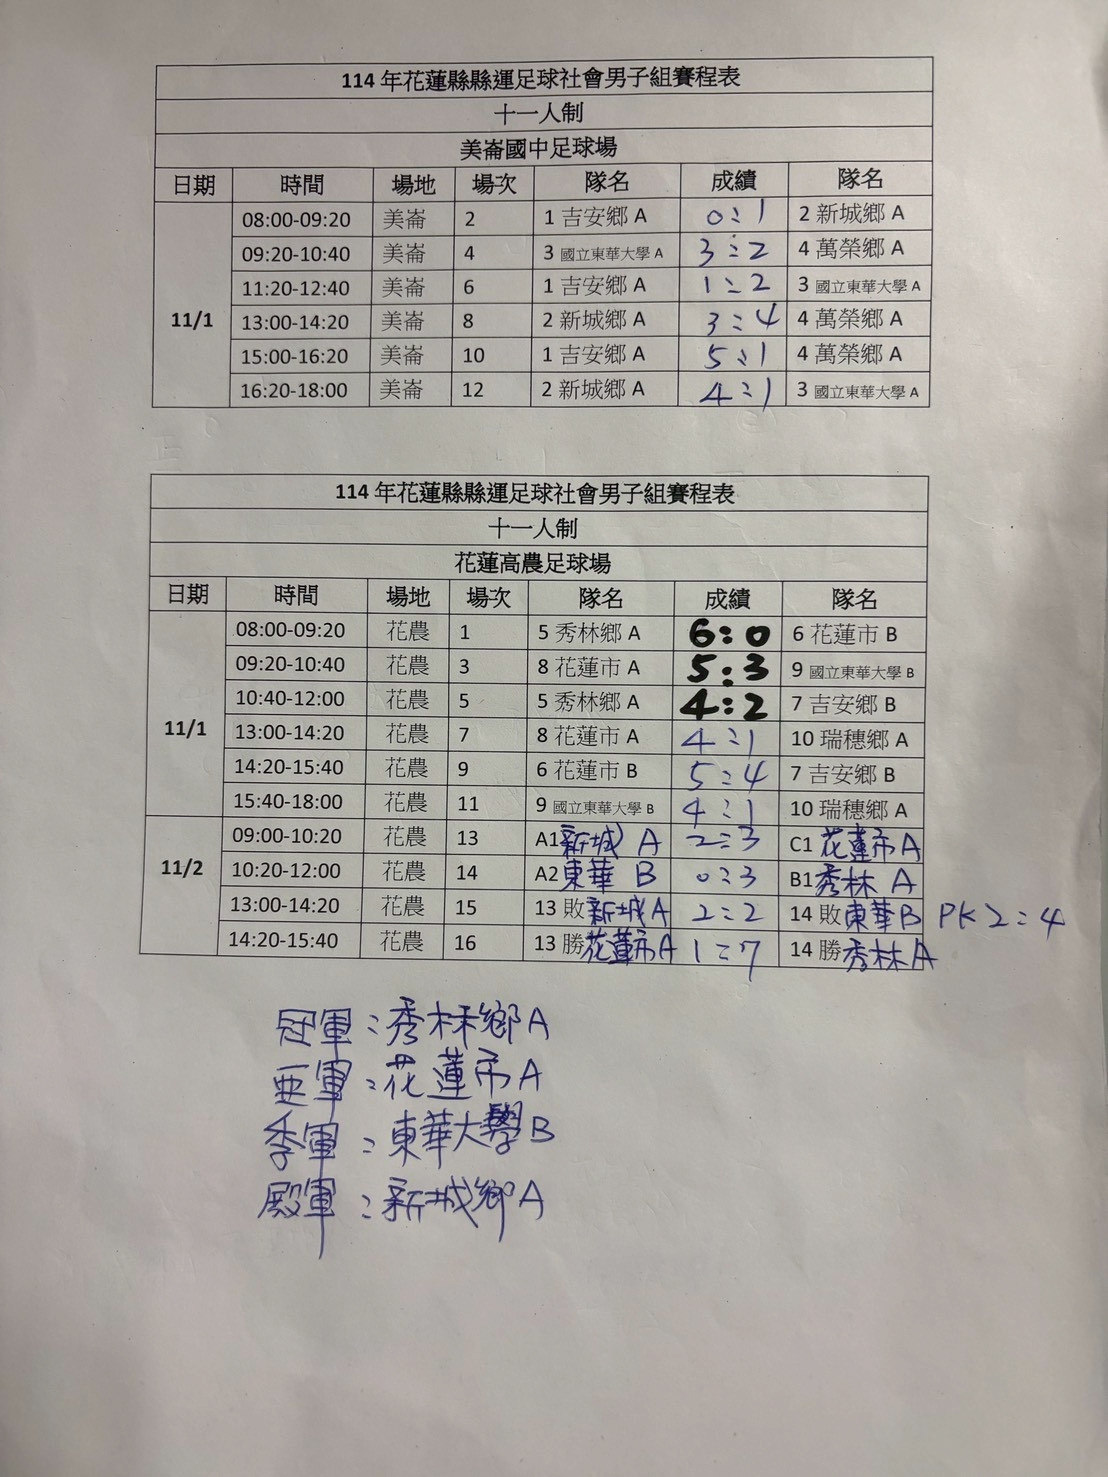 114 年花蓮縣縣運足球社會男子組賽程表
十一人制
美崙國中足球場
日期 時間 場地 場次 隊名 成績 隊名
08:00-09:20 美崙 2 1 吉安鄉 A 0:1 2 新城鄉 A
09:20-10:40 美崙 4 3 國立東華大學 A 3:2 4 萬榮鄉 A
11:20-12:40 美崙 6 1 吉安鄉 A 1:2 3 國立東華大學 A
11/1 13:00-14:20 美崙 8 2 新城鄉 A 3:4 4 萬榮鄉 A
15:00-16:20 美崙 10 1 吉安鄉 A 5:1 4 萬榮鄉 A
16:20-18:00 美崙 12 2 新城鄉 A 4:1 3 國立東華大學 A
114 年花蓮縣縣運足球社會男子組賽程表
十一人制
花蓮高農足球場
日期 時間 場地 場次 隊名 成績 隊名
08:00-09:20 花農 1 5 秀林鄉 A 6:0 6 花蓮市 B
09:20-10:40 花農 3 8 花蓮市 A 5:3 9 國立東華大學 B
10:40-12:00 花農 5 5 秀林鄉 A 4:2 7 吉安鄉 B
11/1 13:00-14:20 花農 7 8 花蓮市 A 4:1 10 瑞穗鄉 A
14:20-15:40 花農 9 6 花蓮市 B 5:4 7 吉安鄉 B
15:40-18:00 花農 11 9 國立東華大學 B 4:1 10 瑞穗鄉 A
09:00-10:20 花農 13 A1新城 A 2:3 C1 花蓮市A
11/2 10:20-12:00 花農 14 A2東華 B 0:3 B1秀林 A
13:00-14:20 花農 15 13 敗新城A 2:2 14 敗東華B PK 2:4
14:20-15:40 花農 16 13 勝花蓮市A 1:7 14 勝秀林A
冠軍:秀林鄉A
亞軍:花蓮市A
季軍:東華大學B
殿軍:新城鄉A